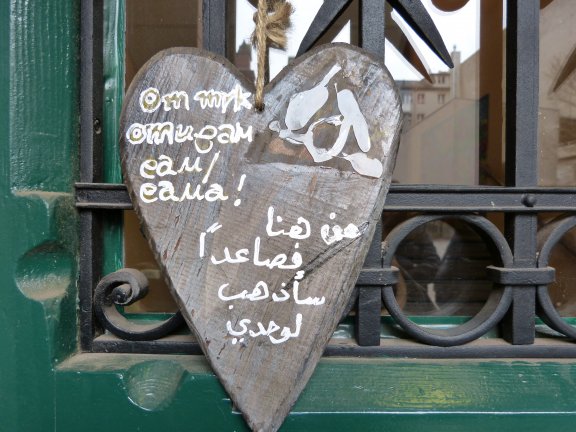 От тук
отивам
сам/
сама!
من هنا
فصاعداً
سأذهب
لوحدي